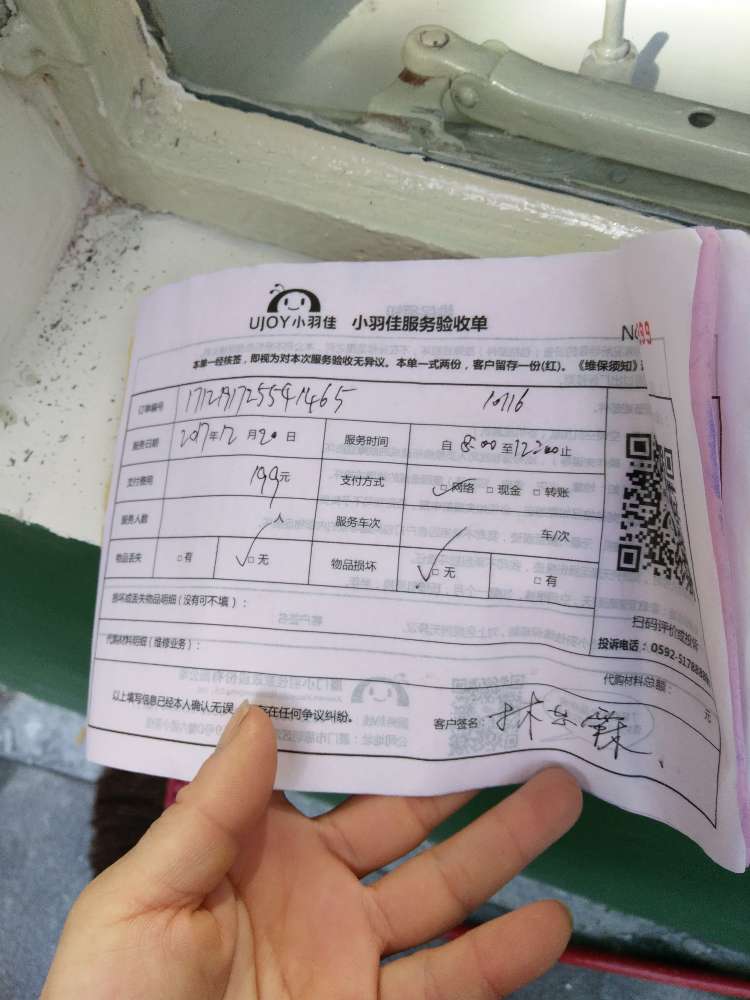 UJOY小羽佳 小羽佳服务验收单
本单一经核签，即视为对本次服务验收无异议。本单一式两份，客户留存一份(红)。《维保须知》
订单编号 10116
服务日期 2017年12月20日 服务时间 自8:00至12:00止
支付费用 199元 支付方式 □网络 □现金 □转账
服务人数 人 服务车次 车/次
物品丢失 □有 □无 物品损坏 □无 □有
损坏或丢失物品明细（没有可不填）：
扫码评价或投诉
投诉电话：0592-5178888
代购材料明细（维修业务）： 代购材料总额： 元
以上填写信息已经本人确认无误 存在任何争议纠纷。 客户签名：